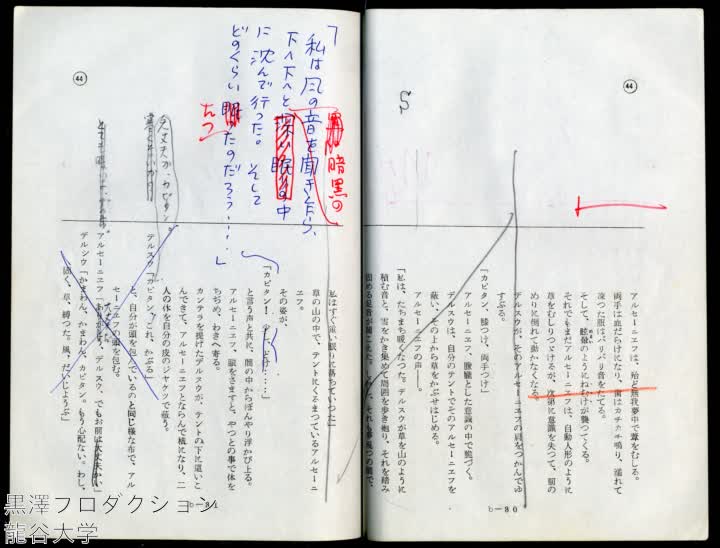 44
S
アルセーニエフは、殆ど無我夢中で葦をむしる。
両手は血だらけになり、歯はカチカチ鳴り、濡れて
凍つた服はバリバリ音をたてる。
そして、眩暈のようにねむけが襲つてくる。
それでもまだアルセーニエフは、自動人形のように
草をむしりつづけるが、次第に意識を失つて、前の
めりに倒れて動かなくなる。
デルスウが、そのアルセーニエフの肩をつかんでゆ
すぶる。
「カピタン、膝つけ、両手つけ」
アルセーニエフ、朦朧とした意識の中で跪づく。
デルスウは、自分のテントでそのアルセーニエフを
蔽い、その上から草をかぶせはじめる。
アルセーニエフの声――。
「私は、たちまち暖くなつた。デルスウが草を山のように
積む音と、雪をかき集めて周囲を歩き廻り、それを踏み
固める足音が聞こえた。
b—80
44
「私は風の音を聞き乍ら、
下へ下へと深い眠りの中
に沈んで行った。そして
どのくらい眠ったのだろう……」
暗黒の
たつ
大丈夫か、カピタン
私はすぐ深い眠りに落ちていつた」
草の山の中で、テントにくるまつているアルセーニ
エフ。
その姿が、
「カピタン！
と言う声と共に、闇の中からぼんやり浮かび上る。
アルセーニエフ、頭をさますと、やつとの事で体を
ちぢめ、わきへ寄る。
カンテラを提げたデルスウが、テントの下に這いこ
んできて、アルセーニエフとならんで横になり、二
人の体を自分の皮のジヤケツで蔽う。
デルスウ「カピタン、これ、かぶる」
と、自分が頭を包んでいるのと同じ様な布で、アル
セーニエフの頭を包む。
アルセーニエフ「ありがとう、デルスウ。でもお前は大丈夫かい」
デルスウ「かまわん、かまわん、カピタン。もう心配ない。わし、
固く、草、縛つた。風、だいじようぶ」
b—81
黒澤プロダクション
龍谷大学